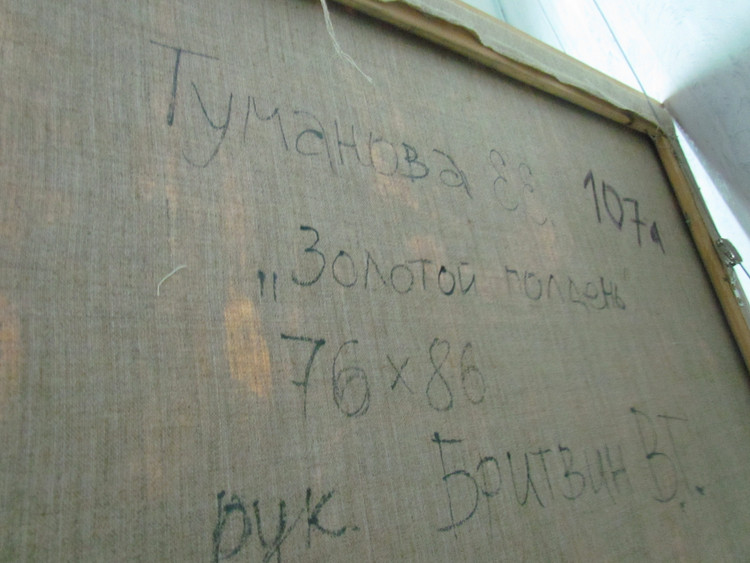 Туманова ЕЕ. 107а
„Золотой полдень"
76 х 86
рук. Бритвин В.Г.